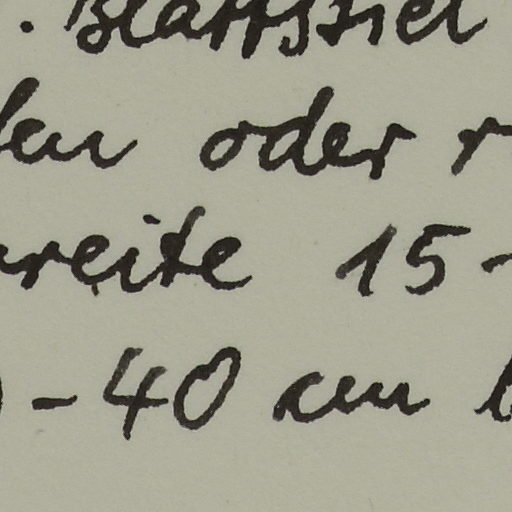 . Blattstiel
en oder r
breite 15-
- 40 cm b